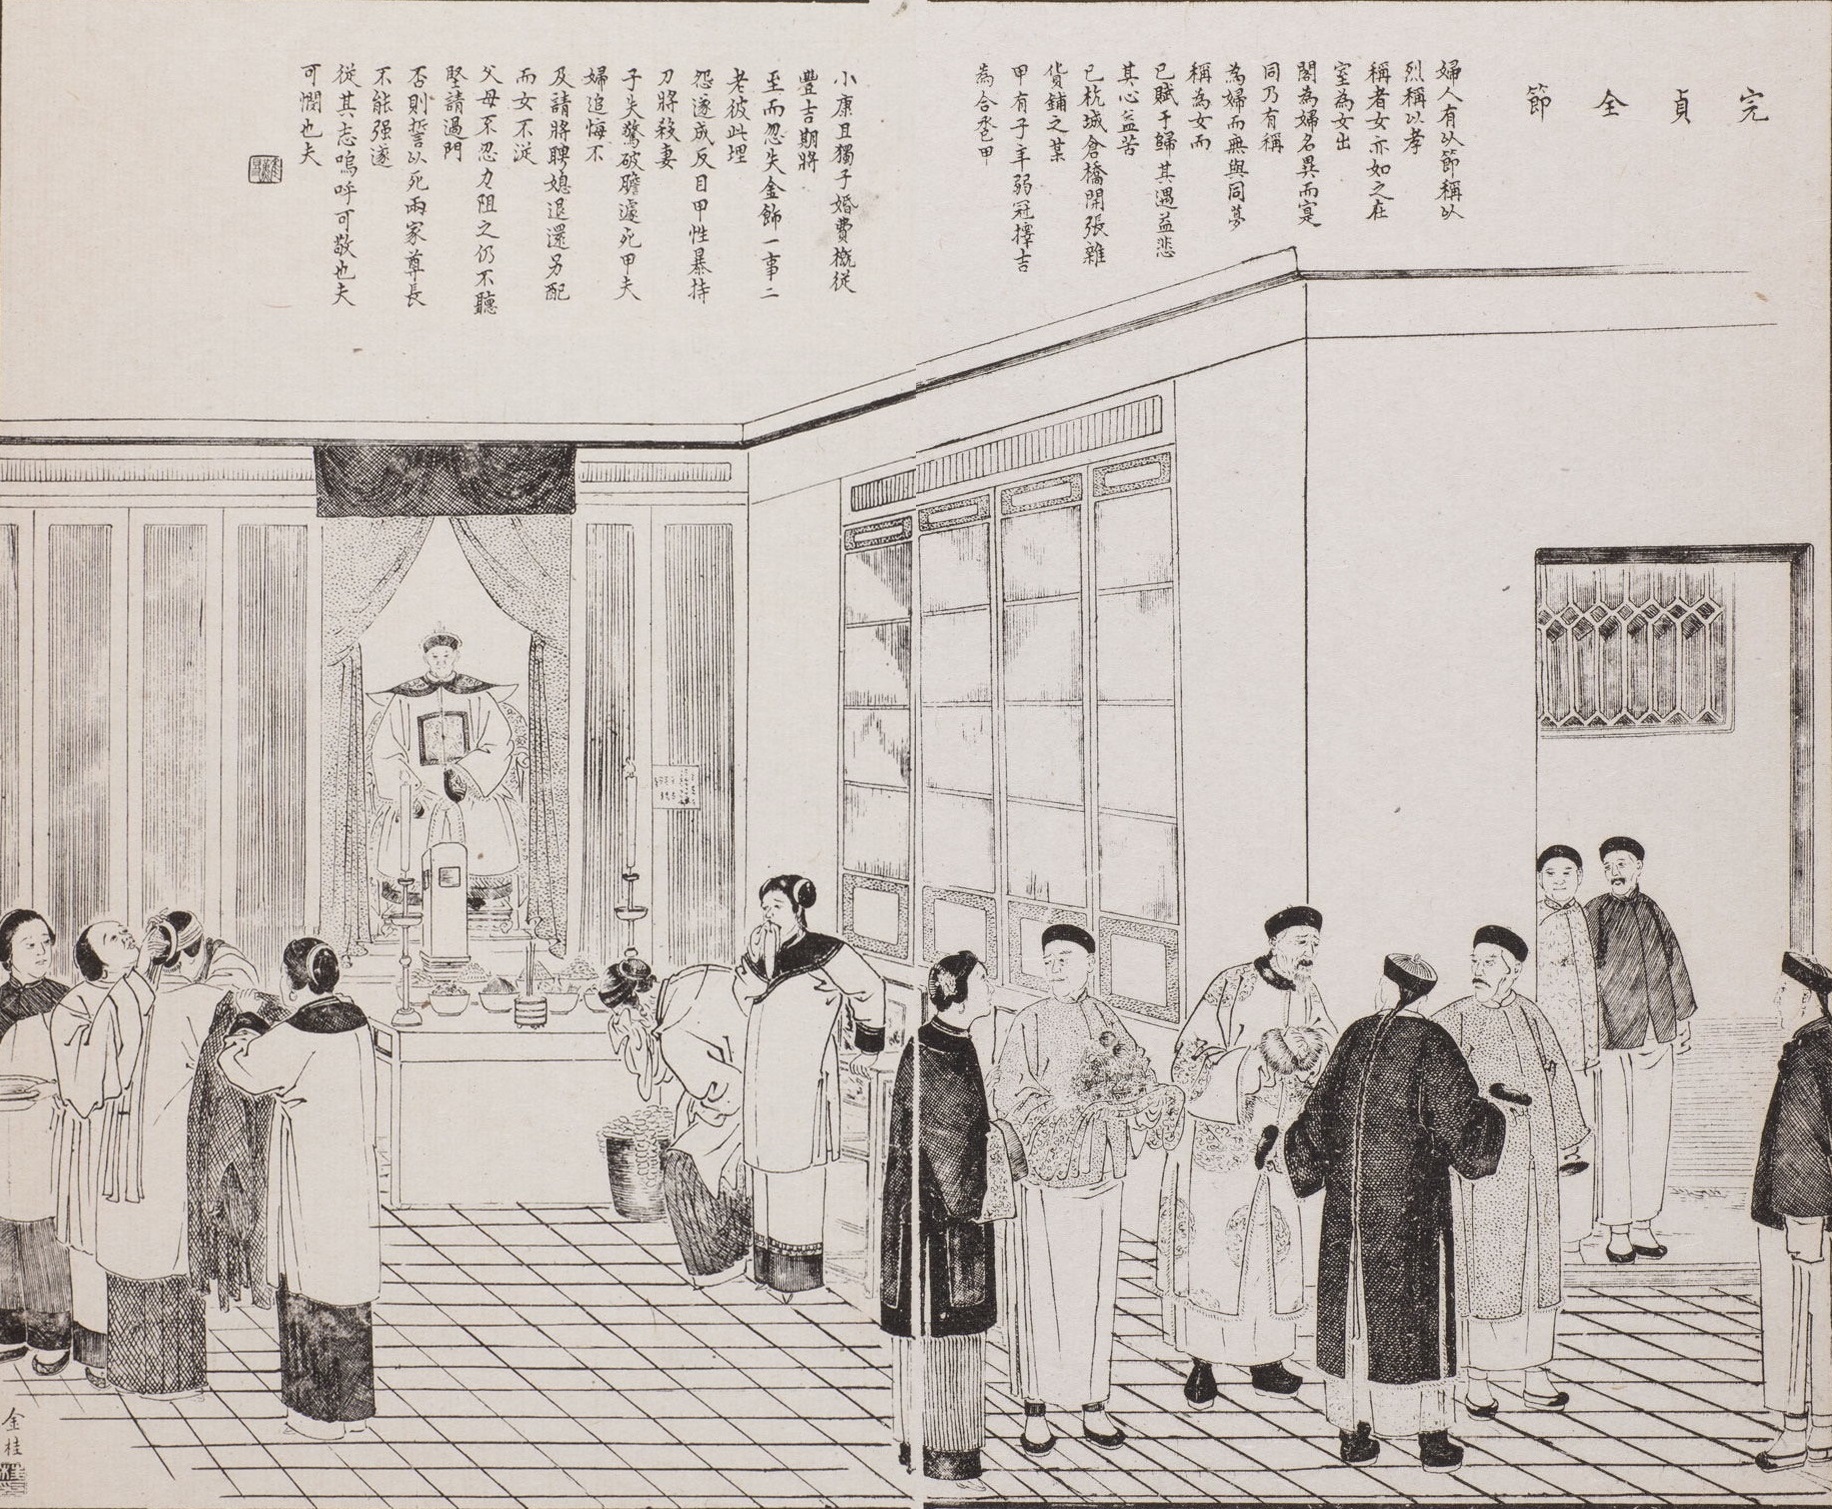 完貞全節
婦人有以節稱以
烈稱以孝
稱者女亦如之在
室為女出
閣為婦名異而寔
同乃有稱
為婦而無與同夢
稱為女而
已賦于歸其遇益悲
其心益苦
已杭城倉橋開張雜
貨鋪之某
甲有子年弱冠擇吉
為合巹甲
小康且獨子婚費概從
豐吉期將
至而忽失金飾一事二
老彼此埋
怨遂成反目甲性暴持
刀將殺妻
子失驚破膽遽死甲夫
婦追悔不
及請將聘媳退還另配
而女不從
父母不忍力阻之仍不聽
堅請過門
否則誓以死兩家尊長
不能强遂
從其志嗚呼可敬也夫
可憫也夫
金桂